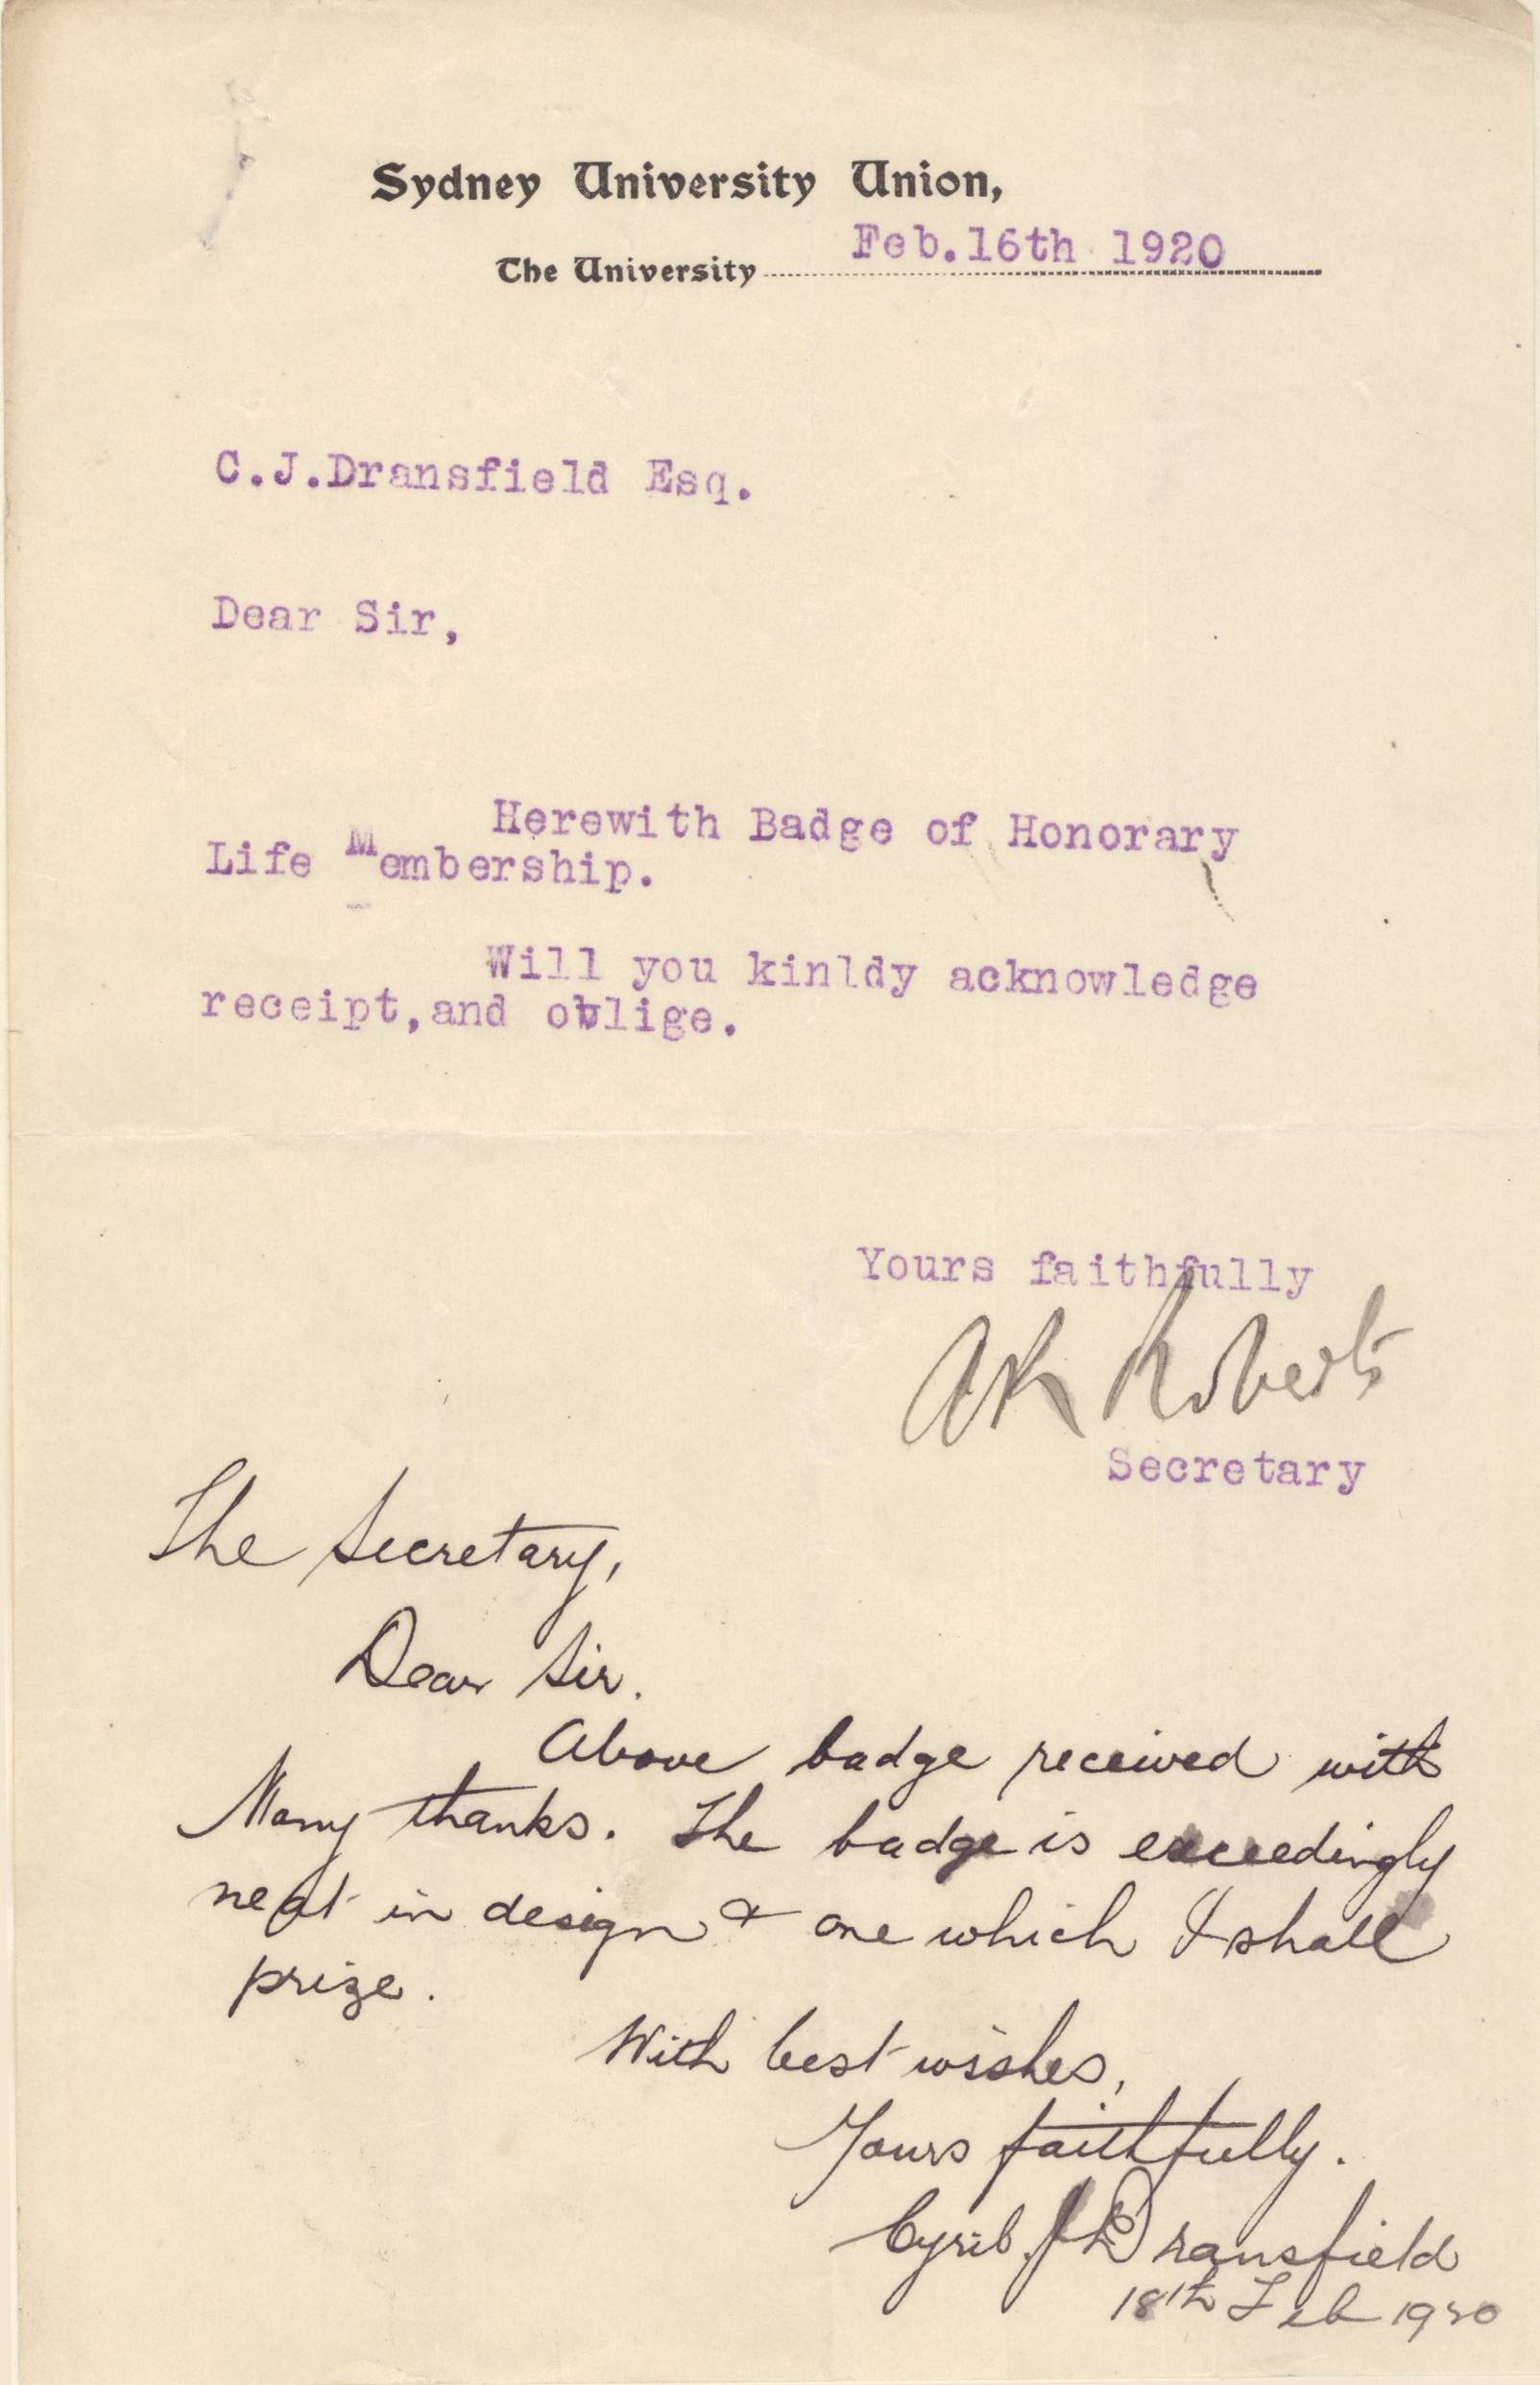 Sydney University Union,
The University Feb.16th 1920
C.J.Dransfield Esq.
Dear Sir,
Herewith Badge of Honorary
Life Membership.
Will you kinldy acknowledge
receipt,and oblige.
Yours faithfully
A R Roberts
Secretary
The Secretary,
Dear Sir.
Above badge received with
Many thanks. The badge is exceedingly
neat in design & one which I shall
prize.
With best wishes,
Yours faithfully.
Cyril. J Dransfield
18th Feb 1920